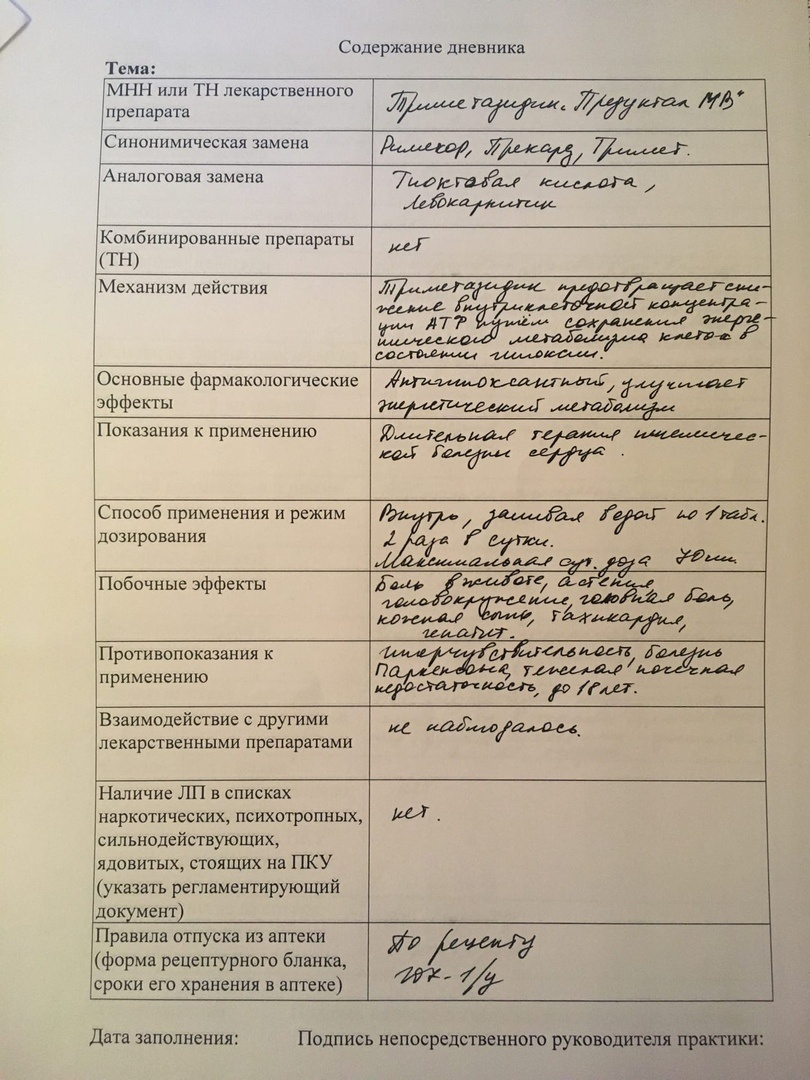 Содержание дневника
Тема:
МНН или ТН лекарственного
препарата
Триметазидин. Предуктал МВ"
Синонимическая замена
Римекор, Прекард, Тримет.
Аналоговая замена
Тиоктовая кислота,
Левокарнитин
Комбинированные препараты
(ТН)
нет
Механизм действия
Триметазидин предотвращает сни-
жение внутриклеточной концентра-
ции АТР путём сохранения энерге-
тического метаболизма клеток в
состоянии гипоксии.
Основные фармакологические
эффекты
Антигипоксантный, улучшает
энергетический метаболизм
Показания к применению
Длительная терапия ишемичес-
кой болезни сердца.
Способ применения и режим
дозирования
Внутрь, запивая водой по 1 табл.
2 раза в сутки.
Максимальная сут. доза 70
Побочные эффекты
Боль в животе, астения,
головокружение, головная боль,
кожная сыпь, тахикардия,
гепатит.
Противопоказания к
применению
гиперчувствительность, болезнь
Паркенсона, тяжелая почечная
недостаточность, до 18 лет.
Взаимодействие с другими
лекарственными препаратами
не наблюдалось.
Наличие ЛП в списках
наркотических, психотропных,
сильнодействующих,
ядовитых, стоящих на ПКУ
(указать регламентирующий
документ)
нет.
Правила отпуска из аптеки
(форма рецептурного бланка,
сроки его хранения в аптеке)
По рецепту
107-1/у
Дата заполнения: Подпись непосредственного руководителя практики: